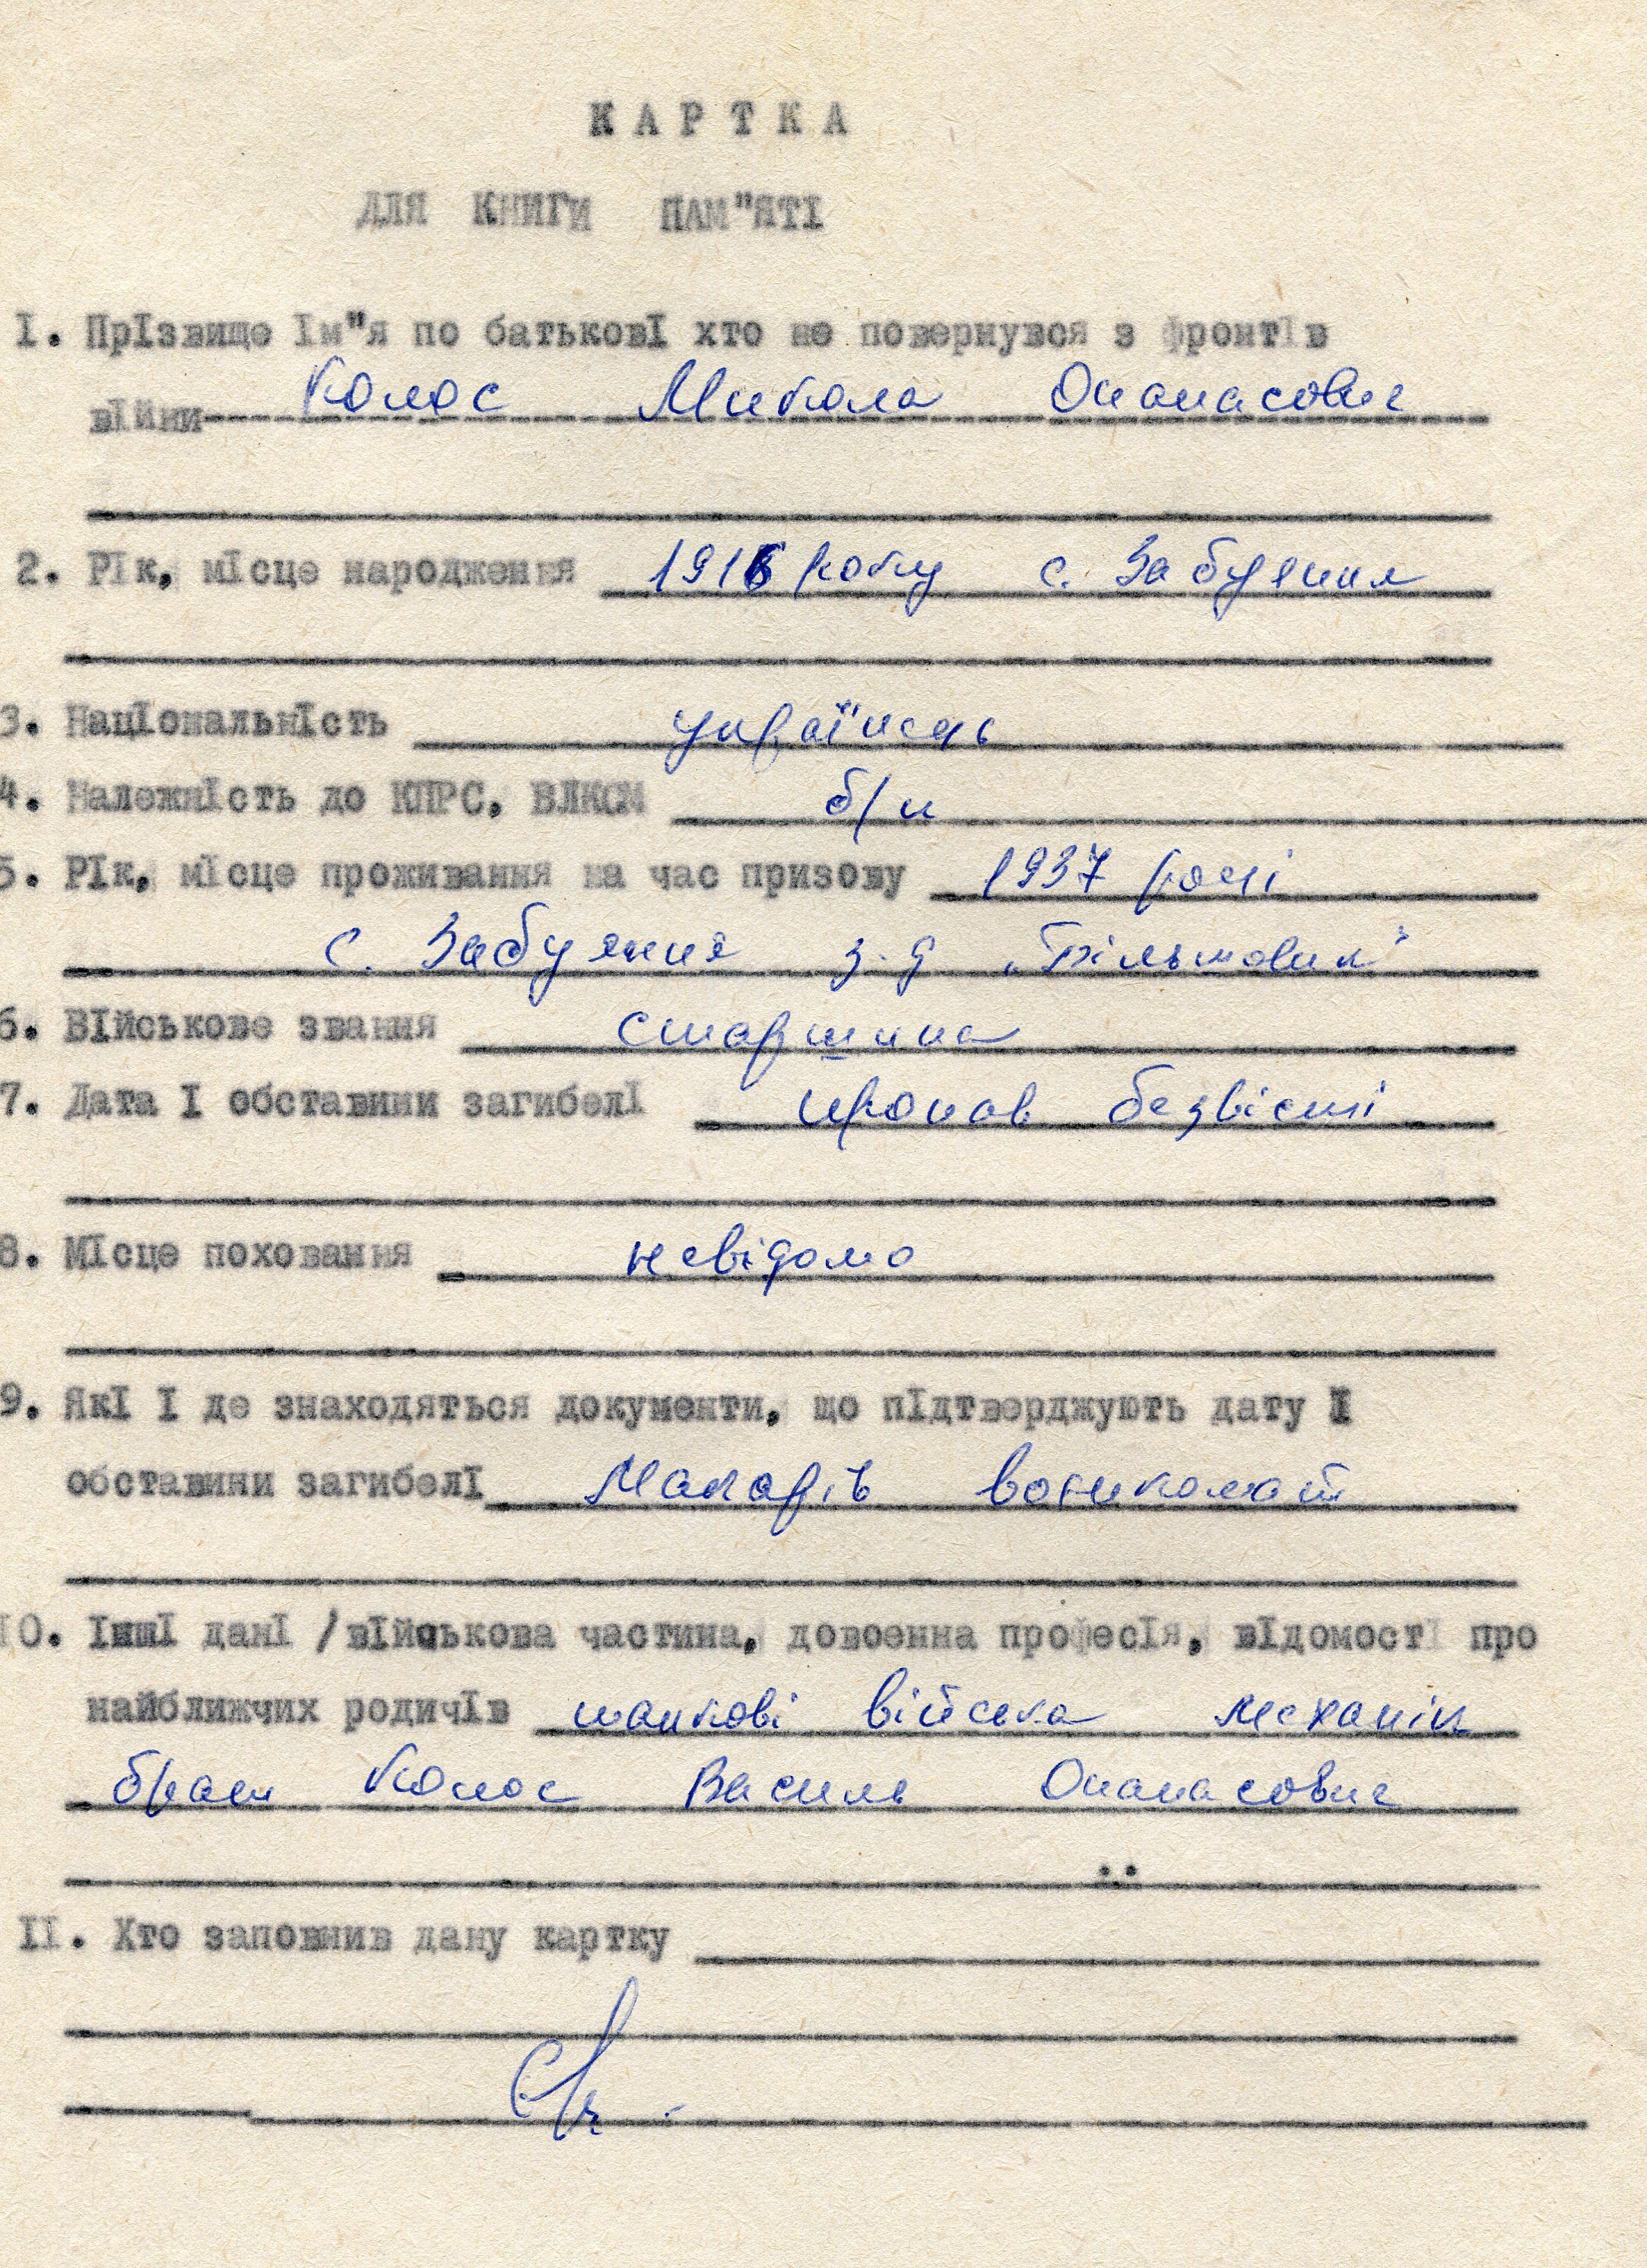 КАРТКА
ДЛЯ КНИГИ ПАМ"ЯТІ
І. ПрІзвище Ім"я по батьковІ хто не повернувся з фронтІв
вІйни Колос Микола Опанасович
2. РІк, мІсце народження 1916 року с. Забуяння
3. НацІональнІсть українець
4. НалежнІсть до КПРС, ВЛКСМ б/п
5. РІк, мІсце проживання на час призову 1937 році
с. Забуяння з-д „Більшовик"
6. ВІйськове звання старшина
7. Дата І обставини загибелІ пропав безвісті
8. МІсце поховання невідомо
9. ЯкІ І де знаходяться документи, що пІдтверджують дату І
обставини загибелІ Макарів воєнкомат
ІО. ІншІ данІ /вІйськова частина, довоенна професІя, вІдомостІ про
найближчих родичІв танкові війська механік
брат Колос Василь Опанасович
ІІ. Хто заповнив дану картку